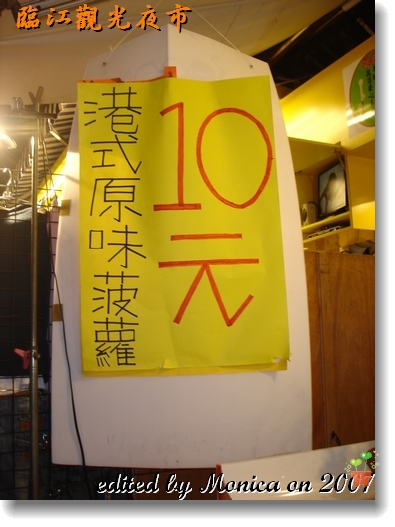 臨江觀光夜市
港式原味菠蘿
10元
edited by Monica on 2007